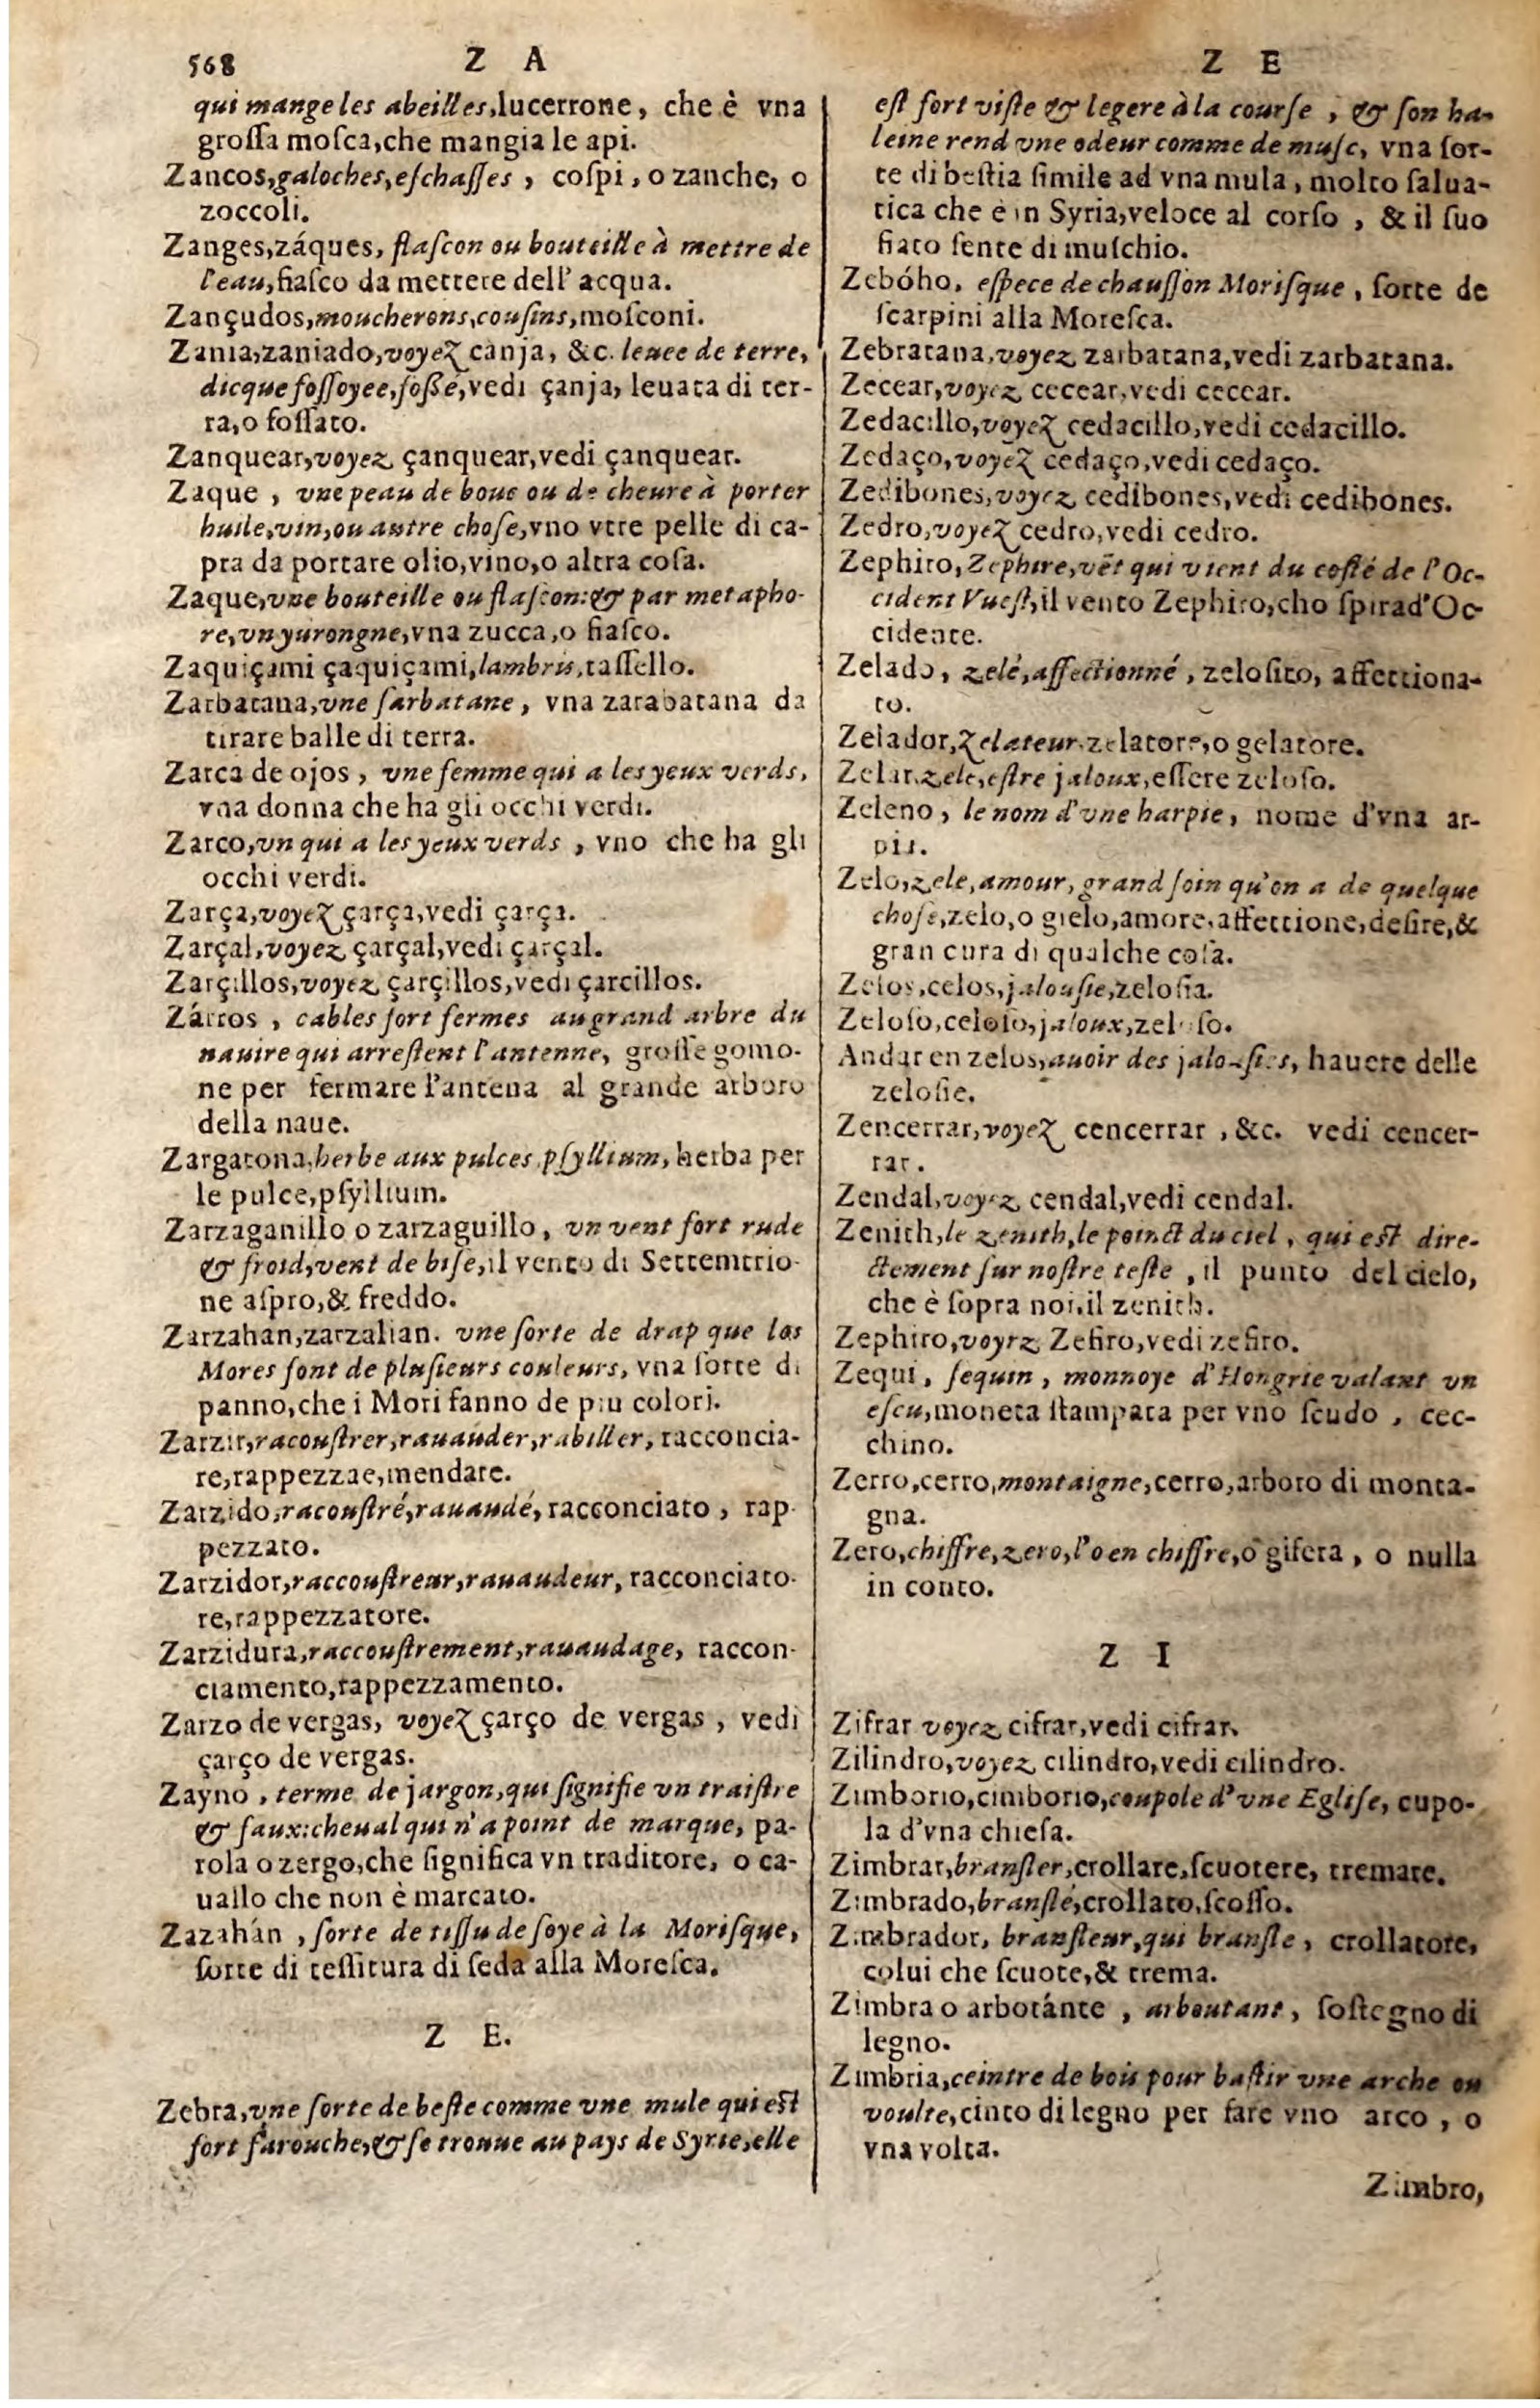 568 Z A
qui mange les abeilles, lucerrone, che è vna
groſſa moſca, che mangia le api.
Zancos, galoches, eſchaſſes, coſpi, o zanche, o
zoccoli.
Zanges, záques, flaſcon ou bouteille à mettre de
l'eau, fiaſco da mettere dell' acqua.
Zançudos, moucherons, couſins, moſconi.
Zania, zaniado, voyez canja, &c. leuee de terre,
dicque foſſoyee, foßé, vedi çanja, leuata di ter-
ra, o foſſato.
Zanquear, voyez çanquear, vedi çanquear.
Zaque, vne peau de bouc ou de cheure à porter
huile, vin, ou autre choſe, vno vtre pelle di ca-
pra da portare olio, vino, o altra coſa.
Zaque, vne bouteille ou flaſcon: & par metapho-
re, vn yurongne, vna zucca, o fiaſco.
Zaquiçami çaquiçami, lambris, taſſello.
Zarbatana, vne ſarbatane, vna zarabatana da
tirare balle di terra.
Zarca de ojos, vne femme qui a les yeux verds,
vna donna che ha gli occhi verdi.
Zarco, vn qui a les yeux verds, vno che ha gli
occhi verdi.
Zarça, voyez çarça, vedi çarça.
Zarçal, voyez çarçal, vedi çarçal.
Zarçillos, voyez çarçillos, vedi çarcillos.
Zárros, cables fort fermes au grand arbre du
nauire qui arreſtent l'antenne, groſſe gomo-
ne per fermare l'antena al grande arboro
della naue.
Zargatona, herbe aux pulces, pſyllium, herba per
le pulce, pſyllium.
Zarzaganillo o zarzaguillo, vn vent fort rude
& froid, vent de biſe, il vento di Settemtrio-
ne aſpro, & freddo.
Zarzahan, zarzalian. vne ſorte de drap que les
Mores font de pluſieurs couleurs, vna ſorte di
panno, che i Mori fanno de piu colori.
Zarzir, racouſtrer, rauauder, rabiller, racconcia-
re, rappezzae, mendare.
Zarzido, racouſtré, rauaudé, racconciato, rap-
pezzato.
Zarzidor, raccouſtreur, rauaudeur, racconciato-
re, rappezzatore.
Zarzidura, raccouſtrement, rauaudage, raccon-
ciamento, rappezzamento.
Zarzo de vergas, voyez çarço de vergas, vedi
çarço de vergas.
Zayno, terme de jargon, qui ſignifie vn traiſtre
& faux: cheual qui n'a point de marque, pa-
rola o zergo, che ſignifica vn traditore, o ca-
uallo che non è marcato.
Zazahán, ſorte de tiſſu de ſoye à la Moriſque,
ſorte di teſſitura di ſeda alla Moreſca.
Z E.
Zebra, vne ſorte de beſte comme vne mule qui eſt
fort farouche, & ſe trouue au pays de Syrie, elle
Z E
eſt fort viſte & legere à la courſe, & ſon ha-
leine rend vne odeur comme de muſc, vna ſor-
te di beſtia ſimile ad vna mula, molto ſalua-
tica che è in Syria, veloce al corſo, & il ſuo
fiato ſente di muſchio.
Zebóho, eſpece de chauſſon Moriſque, ſorte de
ſcarpini alla Moreſca.
Zebratana, voyez zarbatana, vedi zarbatana.
Zecear, voyez cecear, vedi cecear.
Zedacillo, voyez cedacillo, vedi cedacillo.
Zedaço, voyez cedaço, vedi cedaço.
Zedibones, voyez cedibones, vedi cedibones.
Zedro, voyez cedro, vedi cedro.
Zephiro, Zephire, vẽt qui vient du coſté de l'Oc-
cident Vueſt, il vento Zephiro, cho ſpira d'Oc-
cidente.
Zelado, zelé, affectionné, zeloſito, affettiona-
to.
Zelador, zelateur, zelatore, o gelatore.
Zelar, zele, eſtre jaloux, eſſere zeloſo.
Zeleno, le nom d'vne harpie, nome d'vna ar-
pia.
Zelo, zele, amour, grand ſoin qu'on a de quelque
choſe, zelo, o gielo, amore, affettione, deſire, &
gran cura di qualche coſa.
Zelos, celos, jalouſie, zeloſia.
Zeloſo, celoſo, jaloux, zeloſo.
Andar en zelos, auoir des jalouſies, hauere delle
zeloſie.
Zencerrar, voyez cencerrar, &c. vedi cencer-
rar.
Zendal, voyez cendal, vedi cendal.
Zenith, le zenith, le poinct du ciel, qui eſt dire-
ctement ſur noſtre teſte, il punto del cielo,
che è ſopra noi, il zenith.
Zephiro, voyrz Zefiro, vedi zefiro.
Zequi, ſequin, monnoye d'Hongrie valant vn
eſcu, moneta ſtampata per vno ſcudo, cec-
chino.
Zerro, cerro, montaigne, cerro, arboro di monta-
gna.
Zero, chiffre, zero, l'o en chiffre, o gifera, o nulla
in conto.
Z I
Zifrar voyez cifrar, vedi cifrar.
Zilindro, voyez cilindro, vedi cilindro.
Zimborio, cimborio, coupole d'vne Egliſe, cupo-
la d'vna chieſa.
Zimbrar, branſler, crollare, ſcuotere, tremare.
Zimbrado, branſlé, crollato, ſcoſſo.
Zimbrador, branſleur, qui branſle, crollatore,
colui che ſcuote, & trema.
Zimbra o arbotánte, arboutant, ſoſtegno di
legno.
Zimbria, ceintre de bois pour baſtir vne arche ou
voulte, cinto di legno per fare vno arco, o
vna volta.
Zimbro,